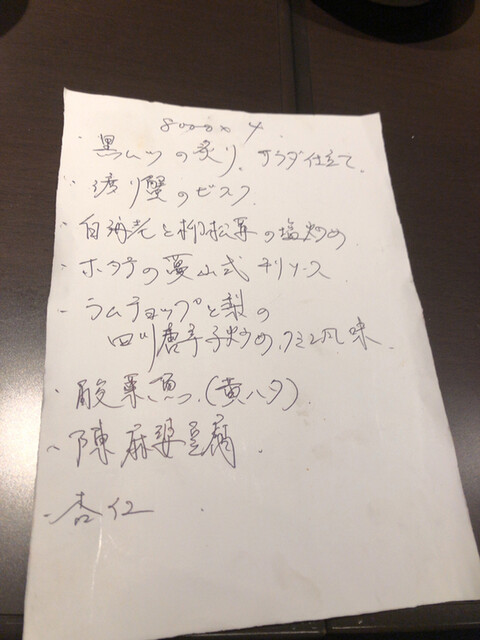 8000×4
・黒ムツの炙り、サラダ仕立て、
・渡り蟹のビスク
・白海老と柳松茸の塩炒め
・ホタテの 山式 チリソース
・ラムチョップと梨の
四川唐辛子炒め、クミン風味、
・酸菜魚、(黄ハタ)
・陳麻婆豆腐、
・杏仁